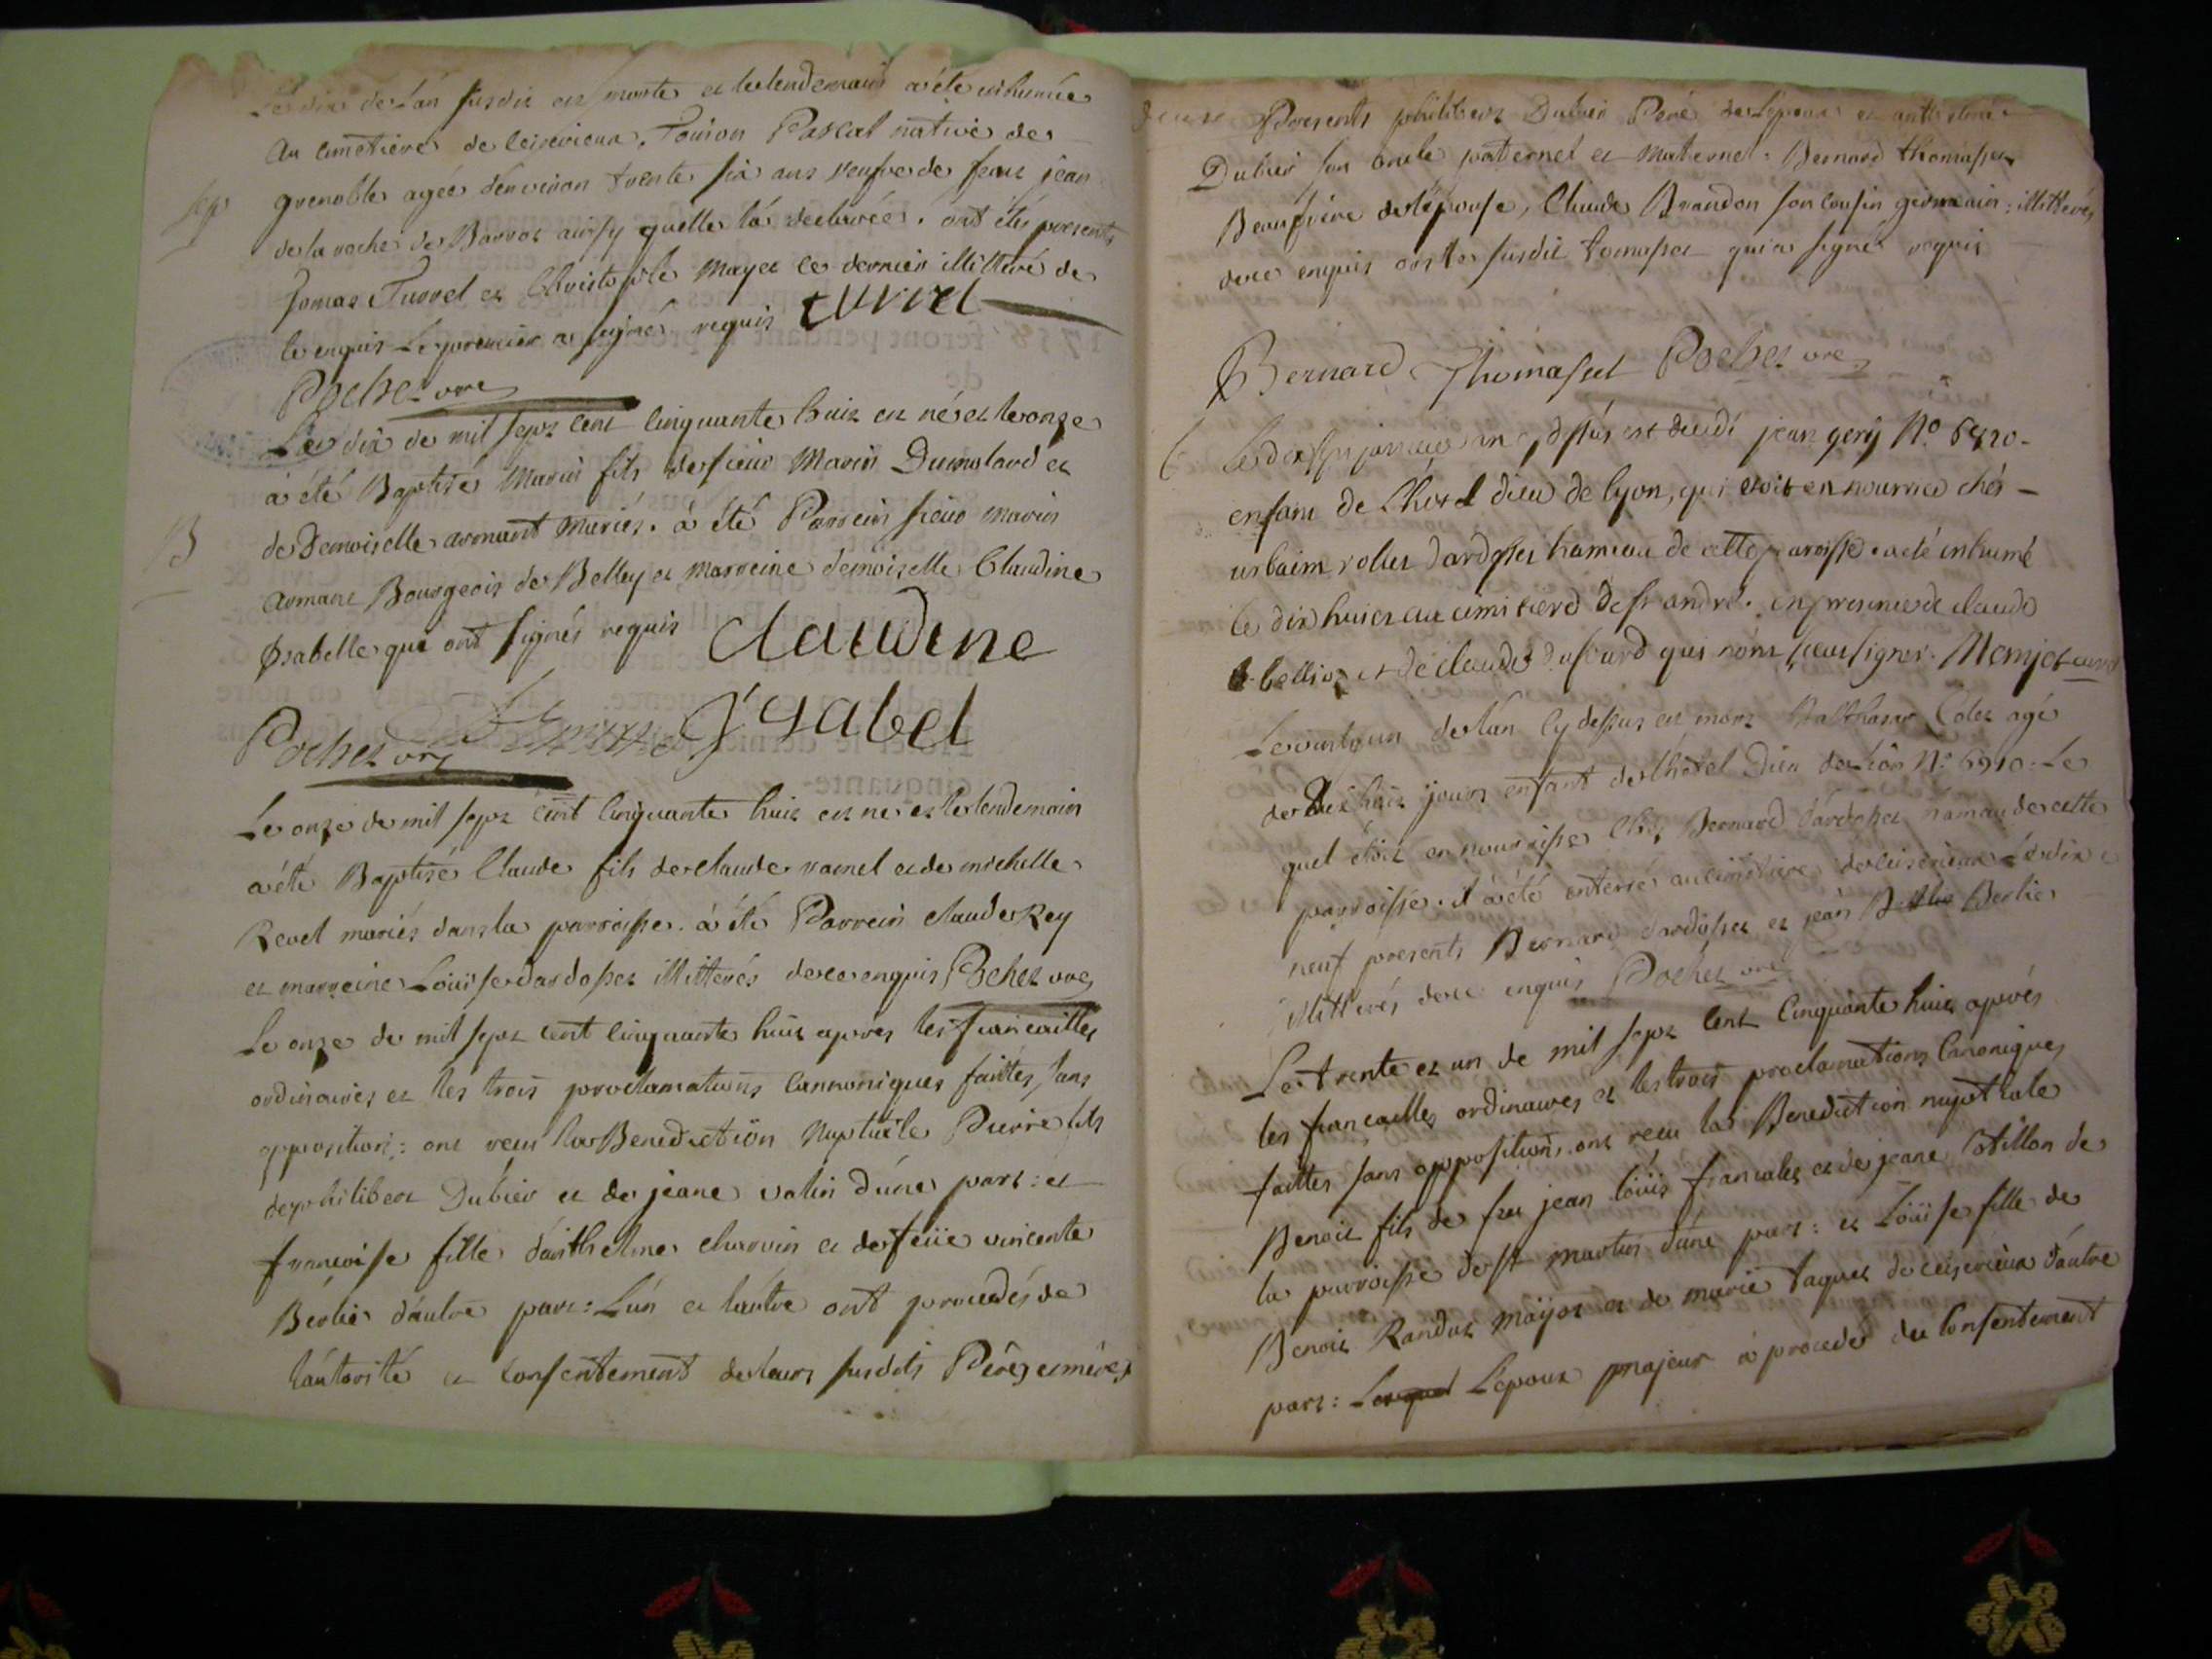 Le dix de Lán susdit est morte et le lendemain a été inhumée
au cimetiere de ceiserieux, Touison Pascal native de
grenoble agée d'environ trente six ans veufve de feux jean
Sep.
de la roche de Barroz ainsy quelle lá declarée. ont étés presents
Jomas Turrel et Christophle Mayet ce dernier illitteré de
ce enquis Le premier a signé requis turrel
Pochet vre
Le dix de mil sept cent cinquante huit est né et le onze
à été Baptisé Marin fils de sieur Marin Dumolard et
B
de Demoiselle armant mariés. à été Parrein sieur marin
armant Bourgeois de Belley et marreine demoiselle Claudine
ysabelle qui ont signés requis Claudine
Pochet vre ysabel
Le onze de mil sept cent cinquante huit est ne et le lendemain
a été Baptisé Claude fils de claude et de michelle
Revel mariés dans la parroisse. à été Parrein claude Rey
et marreine Loüise dardosset illitterés de ce enquis Pochet vre
Le onze de mil sept cent cinquante huit apres les fiancailles
ordinaires et les trois proclamations cannoniques faittes, sans
opposition: ont receu la Benediction Nuptiale Pierre fils
de philibert Dubier et de jeane vatin d'une part: et
francoise fille d'anthelme charvin et de feüe vincente
Berlie d'autre part: L'un et l'autre ont procedés de
l'autorité et consentement de leurs susdits Péres et méres
Presents philibert Dubier Peré de l'epoux et
Dubier son oncle paternel et maternel. Bernard thomasset
Beaufrére de l'épouse, Claude Brandon son cousin germain: illitterés
de ce enquis outre susdit tomasset qui a signé requis
Bernard Thomaset Pochet vre
Le dix sept janvier an cy dessus est decedé jean gery No 6420-
enfant de L'hotel dieu de lyon, qui etoit en nourrice chés -
urbain rollet dardosset hameau de cette paroisse. a eté inhumé
le dix huict au cimitiere de st andré. en presence de claude
bellion et de claude dufourd qui n'ont sceu signer. Monjot curé
Le vint un de lán cy dessus est mort Balthazar Colet agé
de dix huit jours enfant de L'hotel Dieu de Lïon No 6910. Le
quel étoit en nourrisse chez Bernard dardosset hamau de cette
parroisse. il a été enterré au cimetiere de ceiserieux Le dix
neuf presents Bernard dardosset et jean Berlie
illitterés de ce enquis Pochet vre
Le trente et un de mil sept cent Cinquante huit aprés
les fiancailles ordinaires et les trois proclamations Canoniques
faittes sans opposition, ont receu la Benediction nuptiale
Benoit fils de feu jean loüis francalet et de jeane Cotillon de
la parroisse de st martin d'une part: et Loüise fille de
Benoit Randot mayot et de marie taquet de ceiserieux d'autre
part: Lepoux majeur à procedé du consentement